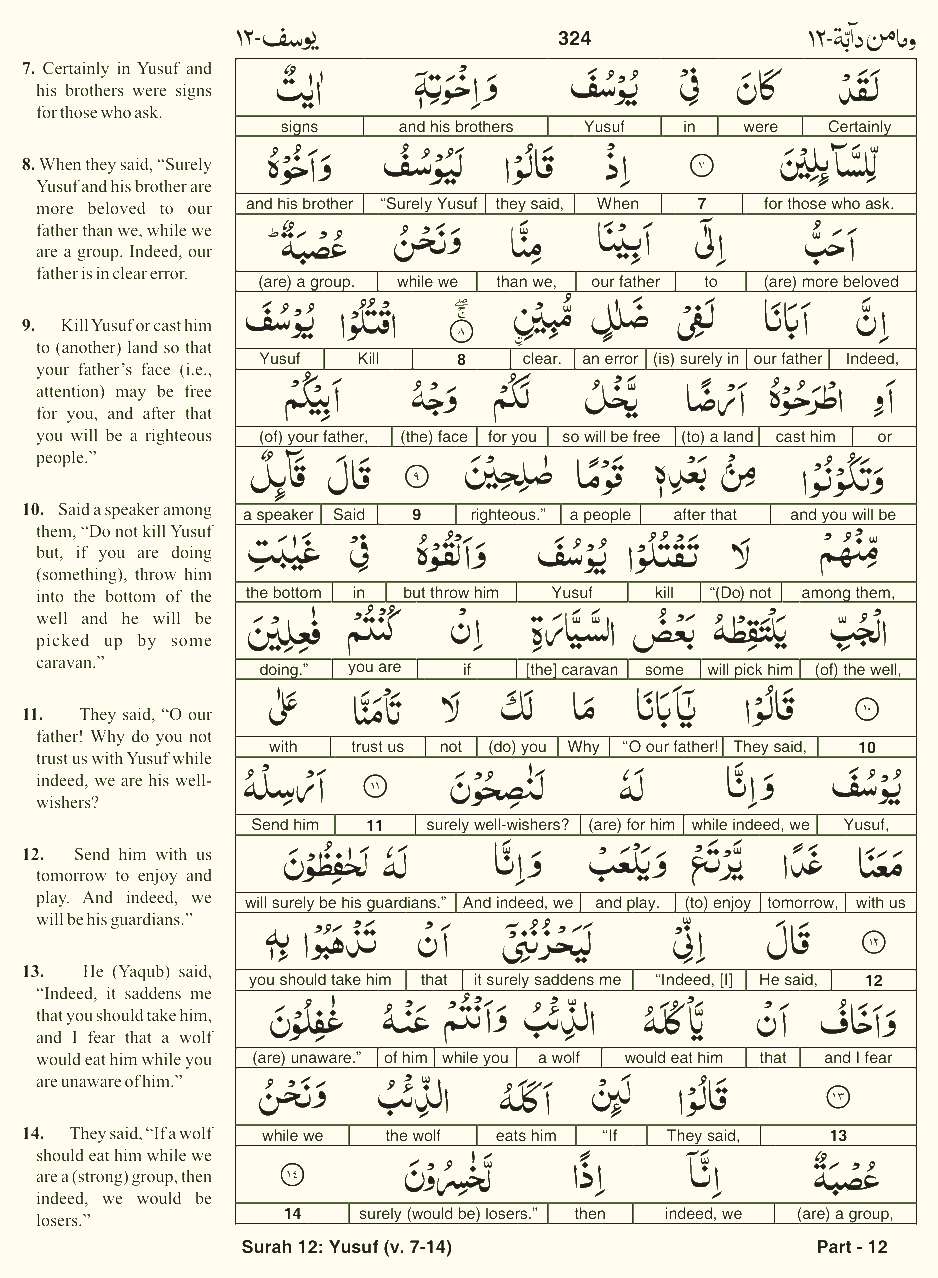 يوسف-١٢ 324 وما من دآبة-١٢
7. Certainly in Yusuf and
his brothers were signs
for those who ask.
8. When they said, “Surely
Yusuf and his brother are
more beloved to our
father than we, while we
are a group. Indeed, our
father is in clear error.
9. Kill Yusuf or cast him
to (another) land so that
your father’s face (i.e.,
attention) may be free
for you, and after that
you will be a righteous
people.”
10. Said a speaker among
them, “Do not kill Yusuf
but, if you are doing
(something), throw him
into the bottom of the
well and he will be
picked up by some
caravan.”
11. They said, “O our
father! Why do you not
trust us with Yusuf while
indeed, we are his well-
wishers?
12. Send him with us
tomorrow to enjoy and
play. And indeed, we
will be his guardians.”
13. He (Yaqub) said,
“Indeed, it saddens me
that you should take him,
and I fear that a wolf
would eat him while you
are unaware of him.”
14. They said, “If a wolf
should eat him while we
are a (strong) group, then
indeed, we would be
losers.”
لَقَدْ كَانَ فِيْ يُوْسُفَ وَاِخْوَتِهٖٓ اٰيٰتٌ
signs and his brothers Yusuf in were Certainly
لِّلسَّآىِٕلِيْنَ ٧ اِذْ قَالُوْا لَيُوْسُفُ وَاَخُوْهُ
and his brother “Surely Yusuf they said, When 7 for those who ask.
اَحَبُّ اِلٰٓى اَبِيْنَا مِنَّا وَنَحْنُ عُصْبَةٌ ؕ
(are) a group. while we than we, our father to (are) more beloved
اِنَّ اَبَانَا لَفِيْ ضَلٰلٍ مُّبِيْنِ ۖ ٨ اقْتُلُوْا يُوْسُفَ
Yusuf Kill 8 clear. an error (is) surely in our father Indeed,
اَوِ اطْرَحُوْهُ اَرْضًا يَّخْلُ لَكُمْ وَجْهُ اَبِيْكُمْ
(of) your father, (the) face for you so will be free (to) a land cast him or
وَتَكُوْنُوْا مِنْۢ بَعْدِهٖ قَوْمًا صٰلِحِيْنَ ٩ قَالَ قَآىِٕلٌ
a speaker Said 9 righteous.” a people after that and you will be
مِّنْهُمْ لَا تَقْتُلُوْا يُوْسُفَ وَاَلْقُوْهُ فِيْ غَيٰبَتِ
the bottom in but throw him Yusuf kill “(Do) not among them,
الْجُبِّ يَلْتَقِطْهُ بَعْضُ السَّيَّارَةِ اِنْ كُنْتُمْ فٰعِلِيْنَ
doing.” you are if [the] caravan some will pick him (of) the well,
١٠ قَالُوْا يٰٓاَبَانَا مَا لَكَ لَا تَاْمَنَّا عَلٰى
with trust us not (do) you Why “O our father! They said, 10
يُوْسُفَ وَاِنَّا لَهٗ لَنٰصِحُوْنَ ١١ اَرْسِلْهُ
Send him 11 surely well-wishers? (are) for him while indeed, we Yusuf,
مَعَنَا غَدًا يَّرْتَعْ وَيَلْعَبْ وَاِنَّا لَهٗ لَحٰفِظُوْنَ
will surely be his guardians.” And indeed, we and play. (to) enjoy tomorrow, with us
١٢ قَالَ اِنِّيْ لَيَحْزُنُنِيْٓ اَنْ تَذْهَبُوْا بِهٖ
you should take him that it surely saddens me “Indeed, [I] He said, 12
وَاَخَافُ اَنْ يَّاْكُلَهُ الذِّئْبُ وَاَنْتُمْ عَنْهُ غٰفِلُوْنَ
(are) unaware.” of him while you a wolf would eat him that and I fear
١٣ قَالُوْا لَىِٕنْ اَكَلَهُ الذِّئْبُ وَنَحْنُ
while we the wolf eats him “If They said, 13
عُصْبَةٌ اِنَّآ اِذًا لَّخٰسِرُوْنَ ١٤
14 surely (would be) losers.” then indeed, we (are) a group,
Surah 12: Yusuf (v. 7-14) Part - 12